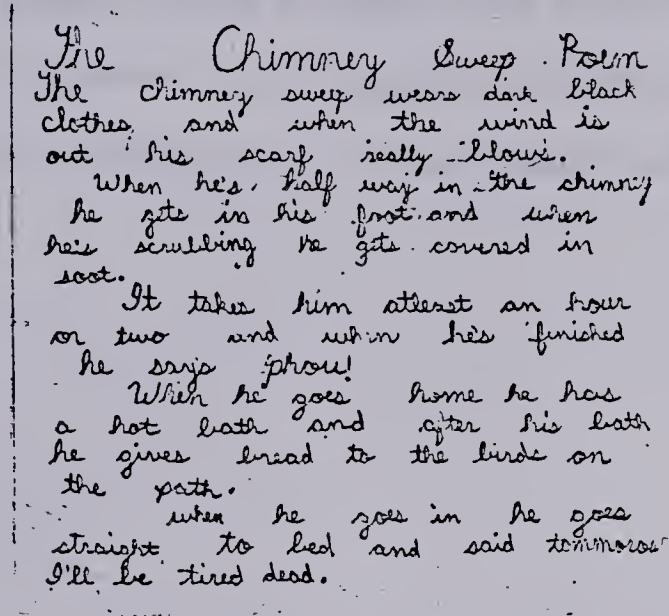 The Chimney Sweep Poem
The chimney sweep wears dark black
clothes, and when the wind is
out his scarf really blows.
When he's half way in the chimney
he gets in his foot and when
he's scrubbing he gets covered in
soot.
It takes him atleast an hour
or two and when he's finished
he says phou!
When he goes home he has
a hot bath and after his bath
he gives bread to the birds on
the path.
when he goes in he goes
straight to bed and said tommorow
I'll be tired dead.